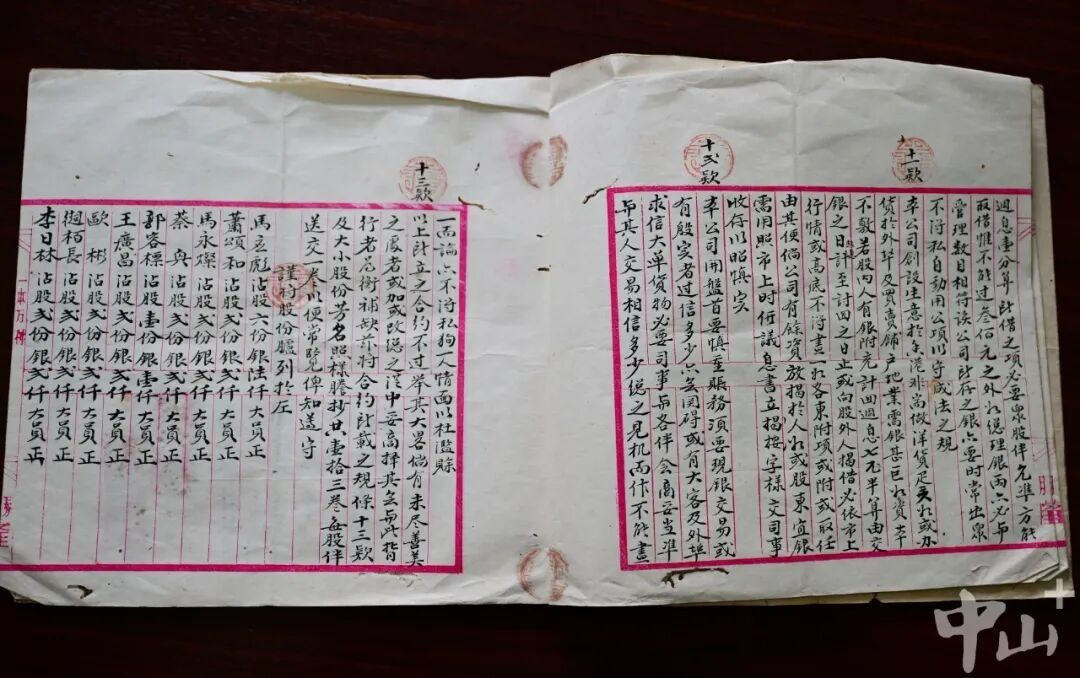 週息壹分算所借之項必要衆股伴允准方能
取借惟不能过叁佰元之外所總理銀両必與
管理数目相符該公司所存之銀亦要时常出衆
不得私自動用公項以守成法之規
十一款
本公司創設生意於香港非尚做洋貨疋
貨於外埠及買賣舖户地業需銀甚巨
不敷若股内人有銀附充計囬週息七元半算由交
銀之日計至討囬之日止或向股外人揭借必依市上
行情或高底不得畫
由其便倘公司有餘資放揭於人
需用照市上时行議息書立揭按字樣交司事
收存以昭慎实
十弍款
本公司開盤首要慎至賬務須要現銀交易或
有殷实者过信多少亦無闵碍或有大客及外埠
求信大单貨物必要司事與各伴会商妥当準
與其人交易相信多少總之見机而作不能盡
一而論亦不得私狥人情面以杜濫賒
十三款
以上所立之合約不过举其大畧倘有未尽善美
之處者或加或改總之從中妥商擇其
行者
及大小股份芳名照樣謄抄廿壹拾三卷每股伴
送交一卷以便常覽俾知遵守
謹将股份臚列於左
馬應彪沾股六份銀陸仟大員正
蕭頌和沾股弍份銀弍仟大員正
馬永燦沾股弍份銀弍仟大員正
蔡興沾股弍份銀弍仟大員正
郭容標沾股壹份銀壹仟大員正
王廣昌沾股弍份銀弍仟大員正
歐彬沾股弍份銀弍仟大員正
栢長沾股弍份銀弍仟大員正
李日林沾股弍份銀弍仟大員正
中山+